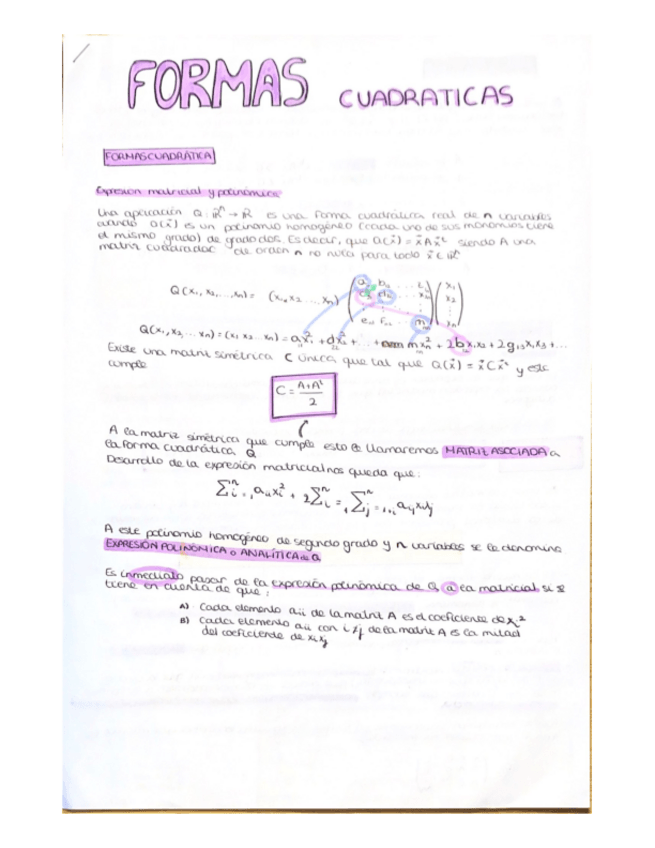 FORMAS CUADRATICAS
FORMAS CUADRÁTICA
Expresion matricial y polinómica
Una aplicación Q: ℝⁿ → ℝ es una forma cuadrática real de n variables
cuando Q(x⃗) es un polinomio homogéneo (cada uno de sus monomios tiene
el mismo grado) de grado dos. Es decir, que Q(x⃗) = x⃗Ax⃗ᵗ siendo A una
matriz cuadrada de orden n no nula para todo x⃗ ∈ ℝⁿ
Q(x₁, x₂, ..., xₙ) = (x₁, x₂ ... xₙ)
Q(x₁, x₂, ... xₙ) = (x₁ x₂ ... xₙ) = a₁₁x₁² + d₂₂x₂² + ... + m xₙ² + 2b x₁x₂ + 2g₁₃x₁x₃ + ...
Existe una matriz simétrica C única que tal que Q(x⃗) = x⃗Cx⃗ᵗ y este
cumple
C = A+Aᵗ / 2
A la matriz simétrica que cumple esto le llamaremos MATRIZ ASOCIADA a
la forma cuadrática Q
Desarrollo de la expresión matricial nos queda que:
∑ⁿᵢ₌₁ aᵢᵢxᵢ² + 2∑ⁿᵢ₌₁ ∑ⁿⱼ₌ᵢ₊₁ aᵢⱼxᵢxⱼ
A este polinomio homogéneo de segundo grado y n variables se le denomina
EXPRESIÓN POLINÓMICA o ANALÍTICA de Q
Es inmediato pasar de la expresión polinómica de Q a la matricial si se
tiene en cuenta de que:
A) Cada elemento aᵢᵢ de la matriz A es el coeficiente de xᵢ²
B) Cada elemento aᵢⱼ con i ≠ j de la matriz A es la mitad
del coeficiente de xᵢxⱼ